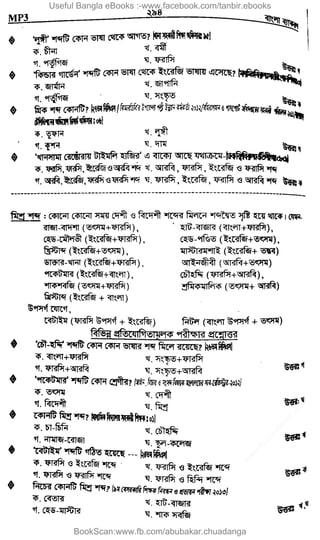 Useful Bangla eBooks :-www.facebook.com/tanbir.ebooks
MP3 ২৯৪ বাংলা ব্যাকরণ
'লুঙ্গী' শব্দটি কোন ভাষা থেকে আগত?
ক. চীনা খ. বর্মী
গ. পর্তুগিজ ঘ. ফারসি
উত্তরঃ খ
'কিন্ডার গার্ডেন' শব্দটি কোন ভাষা থেকে ইংরেজি ভাষায় এসেছে?
ক. জার্মান খ. জাপানি
গ. পর্তুগিজ ঘ. সংস্কৃত
উত্তরঃ ক
মিশ্র শব্দ কোনটি?
ক. তুফান খ. লুঙ্গী
গ. কুশন ঘ. দাম
'খানসামা রেস্তোরায় টাইমলি হাজির' এ বাক্যে আছে যথাক্রমে-
ক. ফারসি, ফরাসি, ইংরেজি ও আরবি শব্দ খ. আরবি, ফারসি, ইংরেজি ও ফরাসি শব্দ
গ. আরবি, ইংরেজি, ফরাসি ও ফারসি শব্দ ঘ. ফারসি, ইংরেজি, ফরাসি ও আরবি শব্দ
মিশ্র শব্দ : কোনো কোনো সময় দেশী ও বিদেশী শব্দের মিলনে শব্দদ্বৈত সৃষ্টি হয়ে থাকে। যেমন-
রাজা-বাদশা (তৎসম+ফারসি), হাট-বাজার (বাংলা+ফারসি),
হেড-মৌলভী (ইংরেজি+ফারসি), হেড-পণ্ডিত (ইংরেজি+তৎসম),
খ্রিস্টাব্দ (ইংরেজি+তৎসম), মাস্টারমশাই (ইংরেজি+
ডাক্তার-খানা (ইংরেজি+ফারসি), আইনজীবী (আরবি+তৎসম)
পকেটমার (ইংরেজি+বাংলা), চৌহদ্দি (ফারসি+আরবি),
শাকশবজি (তৎসম+ফারসি) শ্রমিকমালিক (তৎসম+ আরবি)
খ্রিস্টাব্দ (ইংরেজি + বাংলা)
উপসর্গ যোগে,
বেটাইম (ফারসি উপসর্গ + ইংরেজি) নিটল (বাংলা উপসর্গ + তৎসম)
বিভিন্ন প্রতিযোগিতামূলক পরীক্ষার প্রশ্নোত্তর
'চৌ-হদ্দি' শব্দটি কোন কোন ভাষার শব্দ মিলে হয়েছে?
ক. বাংলা+ফারসি খ. সংস্কৃত+ফারসি
গ. ফারসি+আরবি ঘ. সংস্কৃত+আরবি
উত্তরঃ গ
'পকেটমার' শব্দটি কোন শ্রেণীর?
ক. তৎসম খ. দেশী
গ. বিদেশী ঘ. মিশ্র
উত্তরঃ ঘ
কোনটি মিশ্র শব্দ?
ক. চা-চিনি খ. চৌহদ্দি
গ. নামাজ-রোজা ঘ. স্কুল-কলেজ
'বেটাইম' শব্দটি গঠিত হয়েছে ---
ক. ফারসি ও ইংরেজি শব্দে খ. ফরাসি ও ইংরেজি শব্দে
গ. ফারসি ও ফরাসি শব্দে ঘ. ফারসি ও হিন্দি শব্দে
উত্তরঃ ক
নিচের কোনটি মিশ্র শব্দ?
ক. বেতার খ. হাট-বাজার
গ. হেড-মাস্টার ঘ. শাক সবজি
BookScan:www.fb.com/abubakar.chuadanga